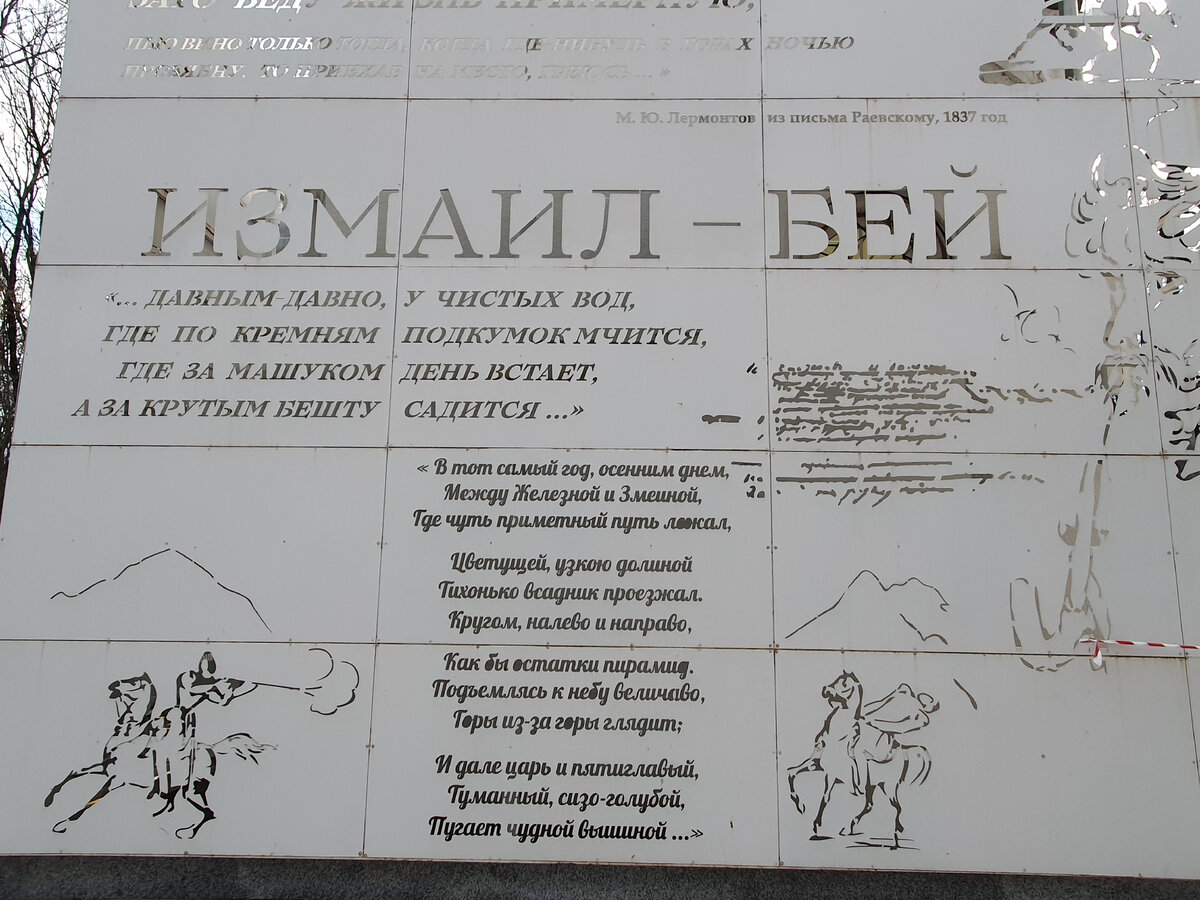 ЗАТО ВЕДУ ЖИЗНЬ ПРИМЕРНУЮ;
ПЬЮ ВИНО ТОЛЬКО ТОГДА, КОГДА ГДЕ-НИБУДЬ В ГОРАХ НОЧЬЮ
ПРОЗЯБНУ, ТО ПРИЕХАВ НА МЕСТО, ГРЕЮСЬ ...»
М. Ю. Лермонтов из письма Раевскому, 1837 год
ИЗМАИЛ – БЕЙ
«... ДАВНЫМ-ДАВНО, У ЧИСТЫХ ВОД,
ГДЕ ПО КРЕМНЯМ ПОДКУМОК МЧИТСЯ,
ГДЕ ЗА МАШУКОМ ДЕНЬ ВСТАЕТ,
А ЗА КРУТЫМ БЕШТУ САДИТСЯ ...»
« В тот самый год, осенним днем,
Между Железной и Змеиной,
Где чуть приметный путь лежал,
Цветущей, узкою долиной
Тихонько всадник проезжал.
Кругом, налево и направо,
Как бы остатки пирамид.
Подъемлясь к небу величаво,
Горы из-за горы глядит;
И дале царь и пятиглавый,
Туманный, сизо-голубой,
Пугает чудной вышиной ...»